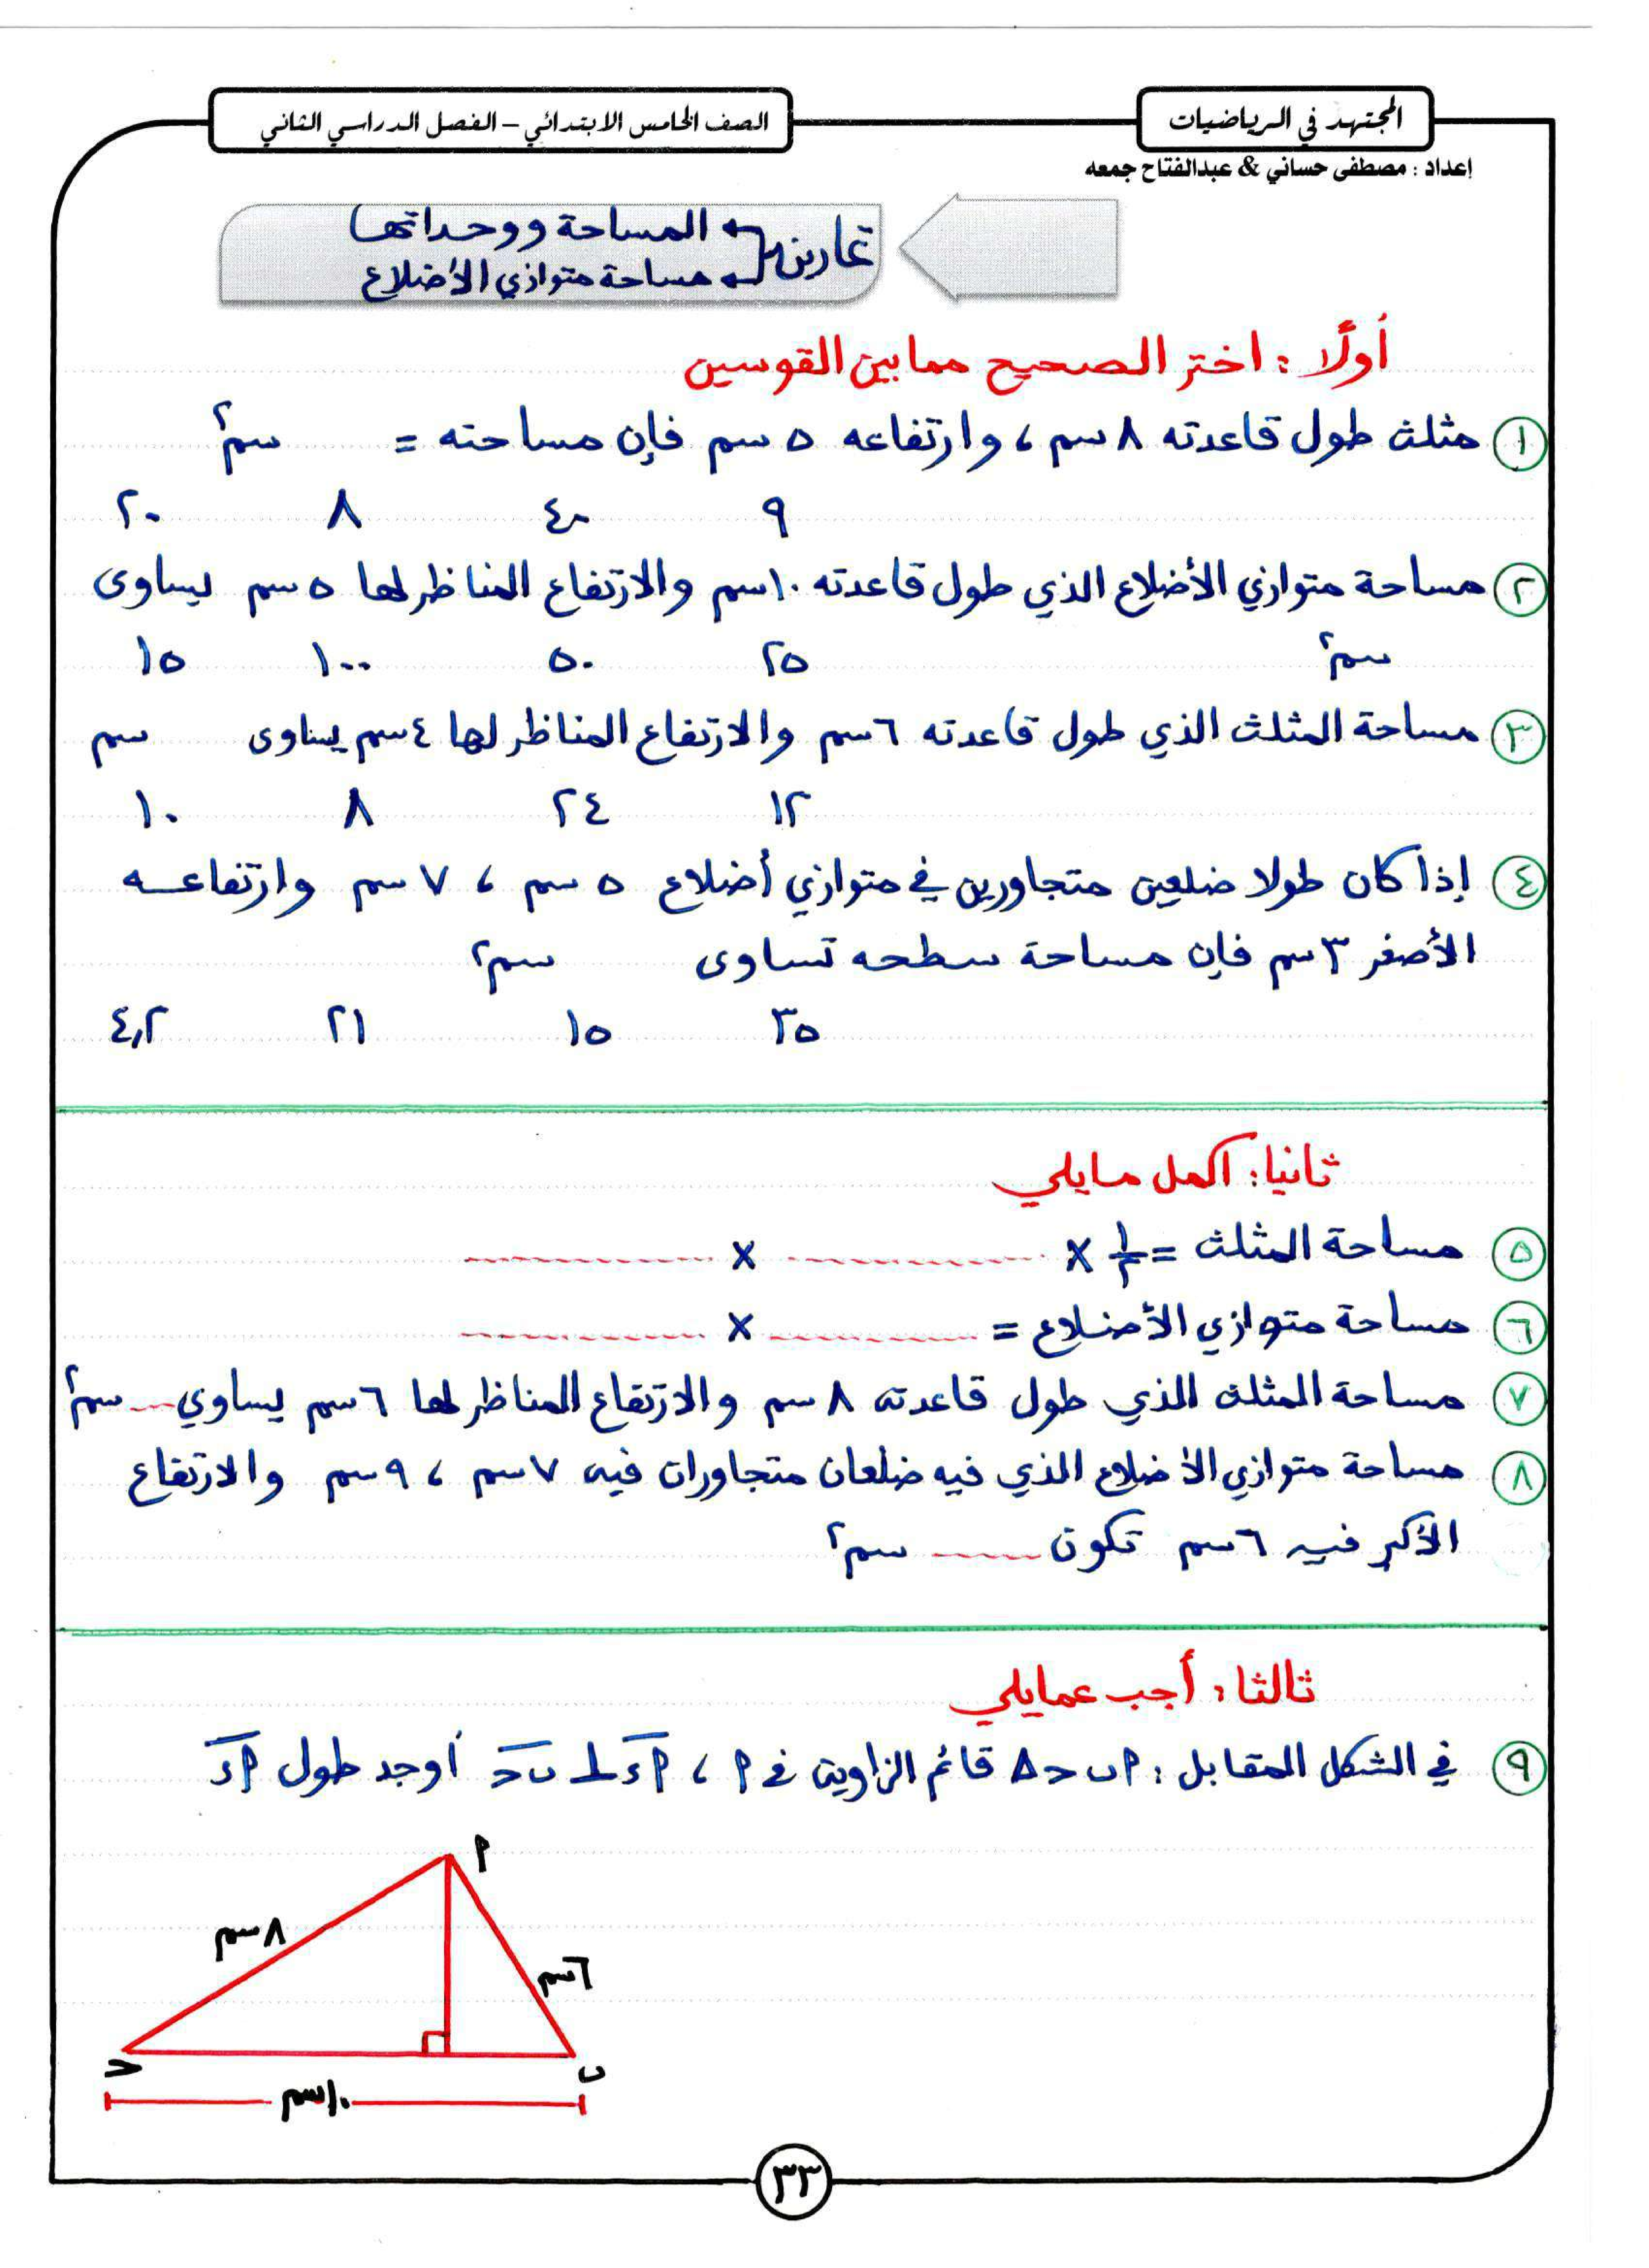 المجتهد في الرياضيات
الصف الخامس الابتدائي – الفصل الدراسي الثاني
إعداد : مصطفى حساني & عبدالفتاح جمعه
تمارين
المساحة ووحداتها
مساحة متوازي الأضلاع
أولًا : اختر الصحيح مما بين القوسين
١ مثلث طول قاعدته ٨ سم ، وارتفاعه ٥ سم فإن مساحته = سم٢
٩ ٤٠ ٨ ٢٠
٢ مساحة متوازي الأضلاع الذي طول قاعدته ١٠ سم والارتفاع المناظر لها ٥ سم يساوى
سم٢ ٢٥ ٥٠ ١٠٠ ١٥
٣ مساحة المثلث الذي طول قاعدته ٦ سم والارتفاع المناظر لها ٤ سم يساوى سم
١٢ ٢٤ ٨ ١٠
٤ إذا كان طولا ضلعين متجاورين في متوازي أضلاع ٥ سم ، ٧ سم وارتفاعه
الأصغر ٣ سم فإن مساحة سطحه تساوى سم٢
٣٥ ١٥ ٢١ ٤,٢
ثانيا : اكمل مايلي
٥ مساحة المثلث = ١/٢ × ............ × ............
٦ مساحة متوازي الأضلاع = ............ × ............
٧ مساحة المثلث الذي طول قاعدته ٨ سم والارتفاع المناظر لها ٦ سم يساوي .... سم٢
٨ مساحة متوازي الأضلاع الذي فيه ضلعان متجاوران فيه ٧ سم ، ٩ سم والارتفاع
الأكبر فيه ٦ سم تكون ........ سم٢
ثالثا : أجب عمايلي
٩ في الشكل المقابل : △ أ ب حـ قائم الزاوية في أ ، أ د ⊥ ب حـ أوجد طول أ د
أ
٨ سم
٦ سم
حـ
ب
١٠ سم
٣٣